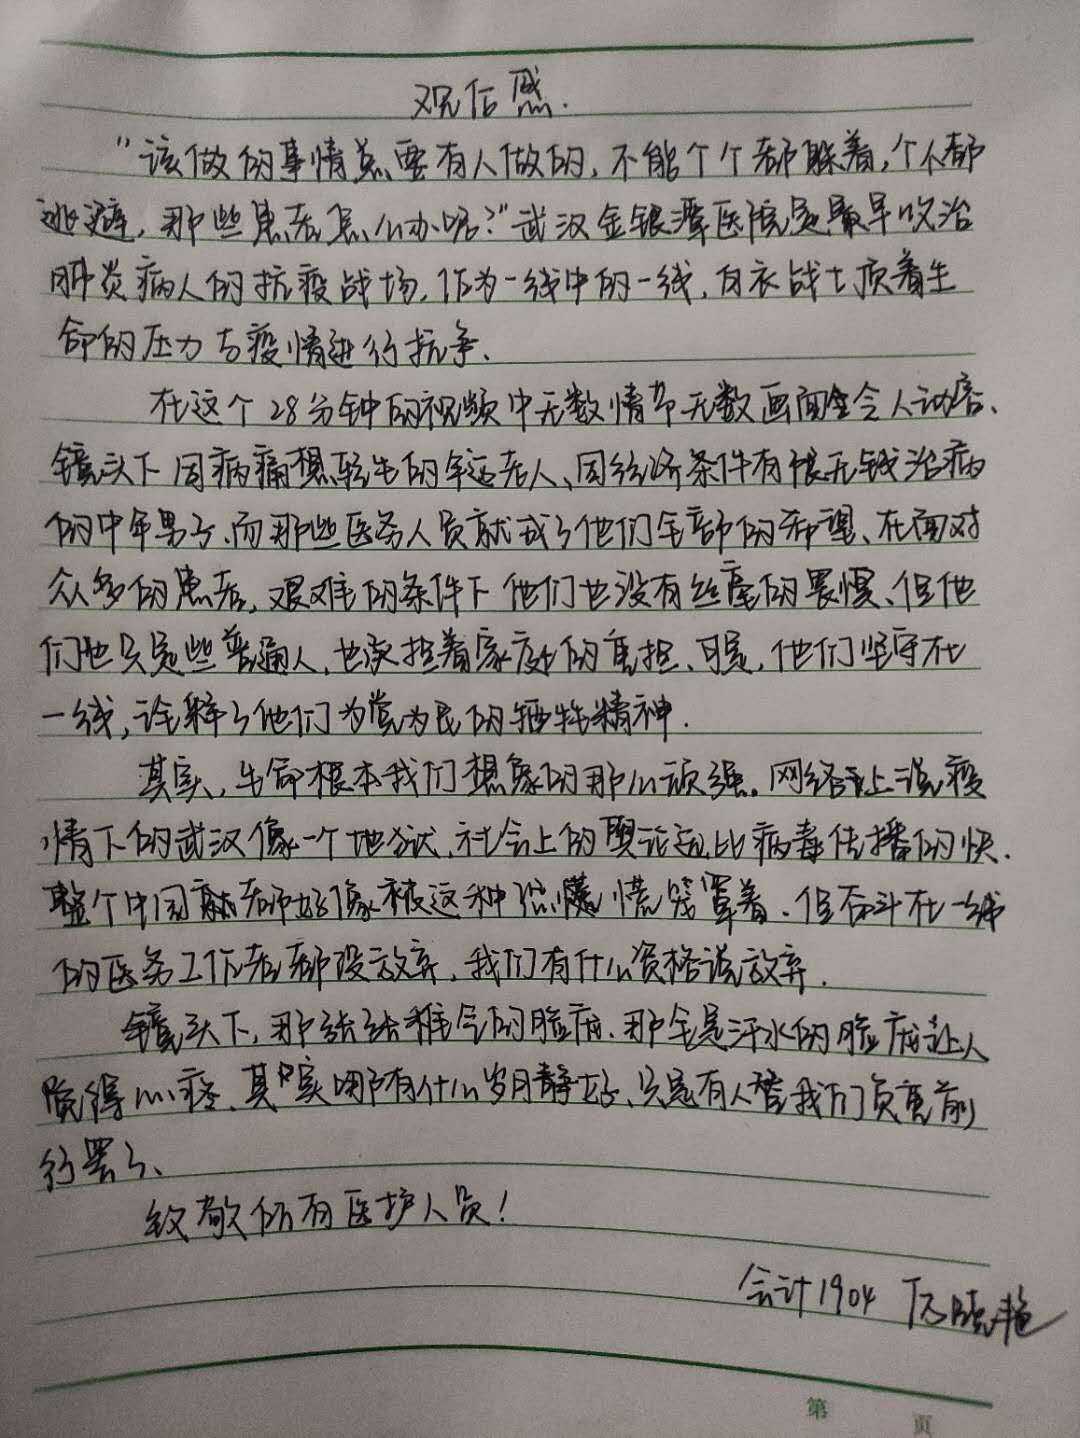 观后感.
"该做的事情总要有人做的,不能个个都躲着,个个都
逃避,那些患者怎么办呢?"武汉金银潭医院是最早收治
肺炎病人的抗疫战场,作为一线中的一线,白衣战士顶着生
命的压力与疫情进行抗争、
在这个28分钟的视频中无数情节无数画面令人动容、
镜头下因病痛想轻生的年迈老人、因经济条件有限无钱治病
的中年男子、而那些医务人员就成了他们全部的希望、在面对
众多的患者,艰难的条件下他们也没有丝毫的畏惧、但他
们也只是些普通人,也承担着家庭的重担、可是,他们坚守在
一线,诠释了他们为党为民的牺牲精神.
其实,生命根本我们想象的那么顽强。网络上说疫
情下的武汉像一个地狱,社会上的舆论远比病毒传播的快.
整个中国都好像被这种恐慌笼罩着.但奋斗在一线
的医务工作者都没放弃,我们有什么资格说放弃.
镜头下,那张张稚气的脸庞.那全是汗水的脸庞让人
觉得心疼、其实哪有什么岁月静好、只是有人替我们负重前
行罢了、
致敬所有医护人员!
会计1904
第 页